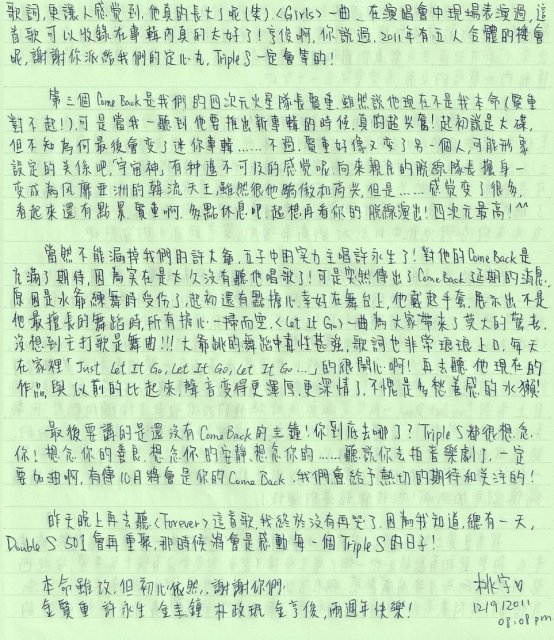 歌詞,更讓人感覺到,他真的長大了呢(笑).<Girls>一曲,在演唱會中現場表演過,這
首歌可以收錄在專輯內真的太好了!亨俊啊,你說過,2011年有五人合體的機會
呢,謝謝你派給我們的定心丸,Triple S一定會等的!
第三個Come Back是我們的四次元火星隊長賢重,雖然說他現在不是我本命(賢重
對不起!),可是當我一聽到他要推出新專輯的時候,真的超興奮!起初說是大碟,
但不知為何最後會變了迷你專輯......不過,賢重好像又變了另一個人,可能形象
設定的關係吧,"宇宙神",有種遙不可及的感覺呢.向來親民的脫線隊長搖身一
變成為風靡亞洲的韓流天王,雖然很他驕傲和高興,但是......感覺變了很多,
看起來還有點累.賢重啊,多點休息吧,超想再看你的脫線演出!四次元最高!^^
當然不能漏掉我們的許大爺,五子中的实力主唱許永生了!對他的Come Back是
充滿了期待,因為实在是太久沒有聽他唱歌了!可是突然傳出了Come Back延期的消息,
原因是永爺練舞時受伤了,起初還有點擔心,幸好在舞台上,他戴起手套,展示出不是
他最擅長的舞蹈時,所有擔心一掃而空.<Let It Go>一曲為大家帶來了莫大的驚喜,
沒想到主打歌是舞曲!!!大爺跳的舞蹈中毒性甚強,歌詞也非常琅琅上口,每天
在家裡"Just Let It Go, Let It Go, Let It Go...」的很開心啊!再去聽他現在的
作品,與以前的比起來,聲音變得更渾厚,更深情了,不愧是多愁善感的水獺!
最後要講的是還沒有Come Back的圭鐘!你到底去哪了?Triple S都很想念
你!想念你的善良,想念你的安靜,想念你的......聽說你去拍音樂劇了,一定
要加油啊,有傳10月將會是你的Come Back,我們會給予熱切的期待和关注的!
昨天晚上再去聽<Forever>這首歌,我終於沒有再哭了.因為我知道,總有一天,
Double S 501會再重聚,那時候將會是感動每一個Triple S的日子!
本命雖改,但初心依然,謝謝你們,
金賢重 許永生 金圭鐘 朴政珉 金亨俊,兩週年快樂!
桃字♡
12/9/2011
08:08 pm